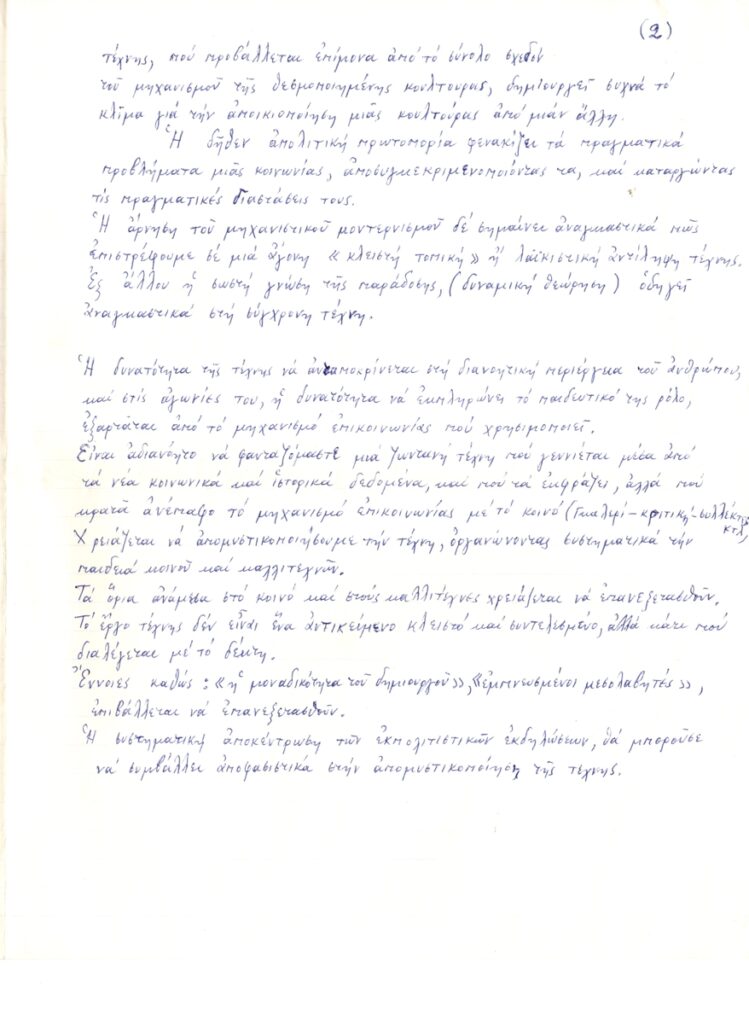 (2)
τέχνης, πού προβάλλεται ἐπίμονα ἀπό τό σύνολο σχεδόν
τοῦ μηχανισμοῦ τῆς θεσμοποιημένης κουλτούρας, δημιουργεῖ συχνά τό
κλῖμα γιά τήν ἀποικιοποίηση μιᾶς κουλτούρας ἀπό μιάν ἄλλη.
Ἡ δῆθεν ἀπολιτική πρωτοπορία φενακίζει τά πραγματικά
προβλήματα μιᾶς κοινωνίας, ἀποσυγκεκριμενοποιόντας τα, καί καταργώντας
τίς πραγματικές διαστάσεις τους.
Ἡ ἄρνηση τοῦ μηχανιστικοῦ μοντερνισμοῦ δέ σημαίνει ἀναγκαστικά πώς
ἐπιστρέφουμε σέ μιά ἄγονη « κλειστή τοπική » ἤ λαϊκιστική ἀντίληψη τέχνης.
Ἐξ ἄλλου ἡ σωστή γνώση τῆς παράδοσης, (δυναμική θεώρηση) ὁδηγεῖ
ἀναγκαστικά στή σύγχρονη τέχνη.
Ἡ δυνατότητα τῆς τέχνης νά ἀνταποκρίνεται στή διανοητική περιέργεια τοῦ ἀνθρώπου,
καί στίς ἀγωνίες του, ἡ δυνατότητα νά ἐκπληρώνει τό παιδευτικό της ρόλο,
ἐξαρτᾶται ἀπό τό μηχανισμό ἐπικοινωνίας πού χρησιμοποιεῖ.
Εἶναι ἀδιανόητο νά φανταζόμαστε μιά ζωντανή τέχνη πού γεννιέται μέσα ἀπό
τά νέα κοινωνικά καί ἱστορικά δεδομένα, καί πού τά ἐκφράζει, ἀλλά πού
κρατᾶ ἀνέπαφο τό μηχανισμό ἐπικοινωνίας μέ τό κοινό (Γκαλερί – κριτική – συλλέκτες
κτλ,
Χρειάζεται νά ἀπομυστικοποιήσουμε τήν τέχνη, ὀργανώνοντας συστηματικά τήν
παιδεία κοινοῦ καί καλλιτεχνῶν.
Τά ὅρια ἀνάμεσα στό κοινό καί στούς καλλιτέχνες χρειάζεται νά ἐπανεξετασθοῦν.
Τό ἔργο τέχνης δέν εἶναι ἕνα ἀντικείμενο κλειστό καί συντελεσμένο, ἀλλά κάτι πού
διαλέγεται μέ τό δέκτη.
Ἔννοιες καθώς : «ἡ μοναδικότητα τοῦ δημιουργοῦ», «ἐμπνευσμένοι μεσολαβητές »,
ἐπιβάλλεται νά ἐπανεξετασθοῦν.
Ἡ συστηματική ἀποκέντρωση τῶν ἐκπολιτιστικῶν ἐκδηλώσεων, θά μποροῦσε
νά συμβάλλει ἀποφασιστικά στήν ἀπομυστικοποίηση τῆς τέχνης.